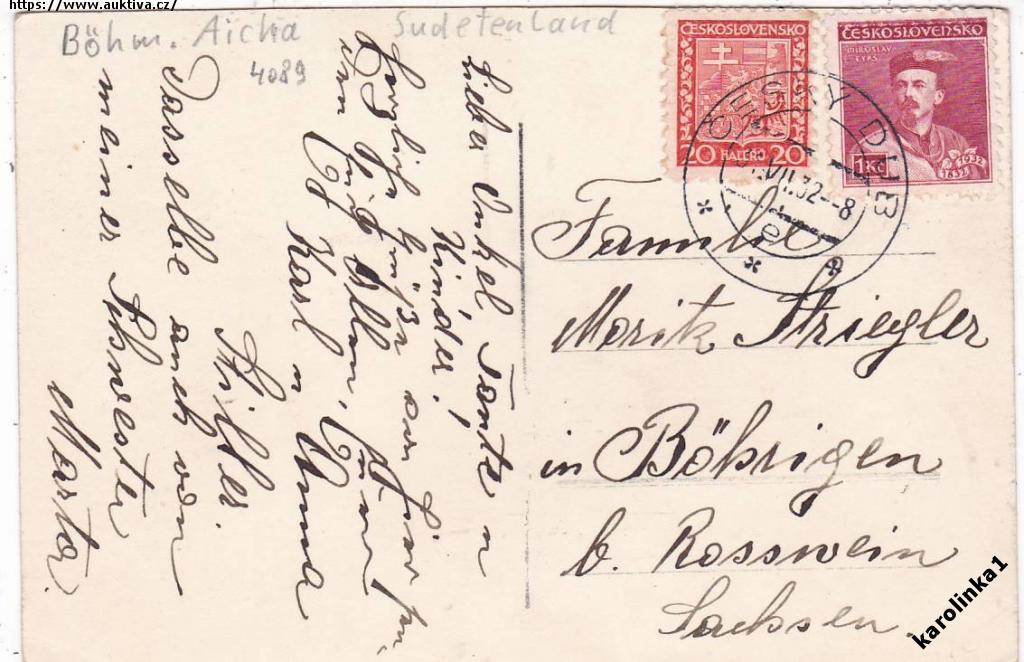 https://www.auktiva.cz/
Böhm. Aicha
Sudetenland
4089
ČESKOSLOVENSKO
20 HALÉŘŮ 20
ČESKOSLOVENSKO
MIROSLAV TYRŠ
1Kč
1832 1932
ČESKÝ DUB
VII.32--8
Lieber Onkel, Tante u
Kinder!
Herzliche Grüße von hier
Euch Allen,
Karl u Anna
Stiller.
Dasselbe auch von
meiner Schwester
Marta.
Familie
Moritz Striegler
in Böhrigen
b. Rosswein
Sachsen.
karolinka1